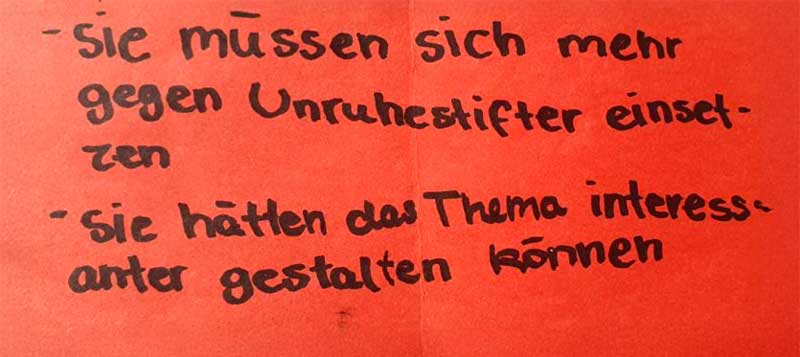 - sie müssen sich mehr
gegen Unruhestifter einset-
zen
- sie hätten das Thema interess-
anter gestalten können